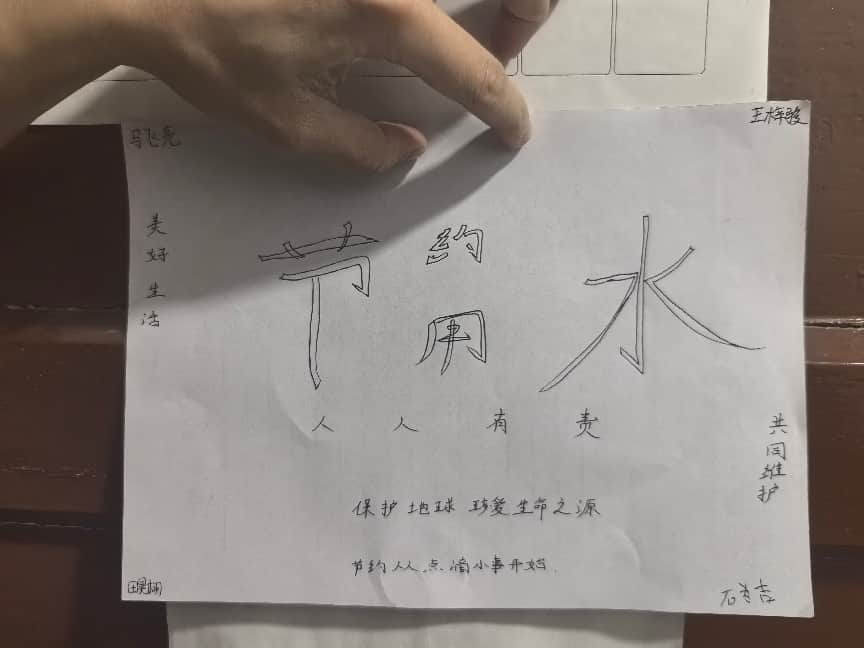 马飞亮
王梓骏
美好生活
节约用水
人人有责
共同维护
保护地球 珍爱生命之源
节约从人点滴小事开始.